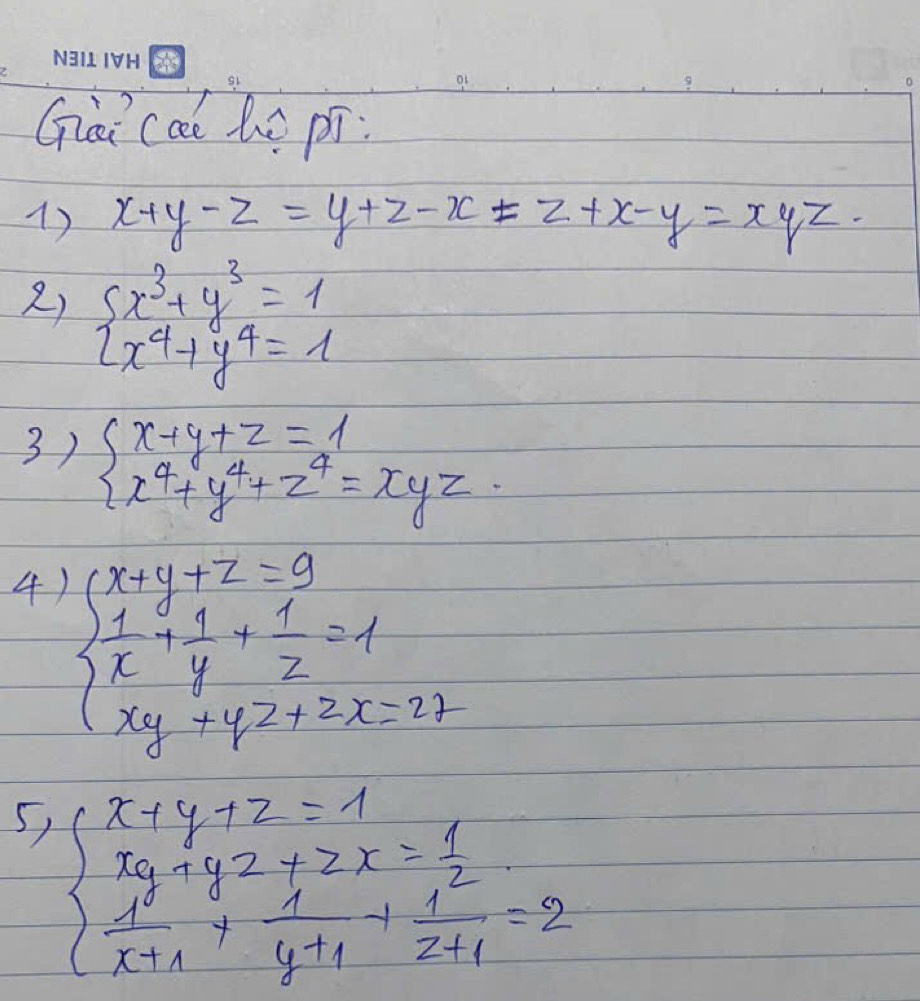 HẢI TIẾN
15 10 5 0
Giải các hệ pT:
1) x+y-z = y+z-x = z+x-y = xyz.
2) { x³+y³ = 1
x⁴+y⁴ = 1
3) { x+y+z = 1
x⁴+y⁴+z⁴ = xyz.
4) { x+y+z = 9
1/x + 1/y + 1/z = 1
xy + yz + zx = 27
5) { x+y+z = 1
xy + yz + zx = 1/2.
1/x+1 + 1/y+1 + 1/z+1 = 2